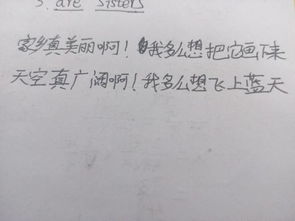 3. are sisters
家乡真美丽啊！我多么想把它画下来
天空真广阔啊！我多么想飞上蓝天